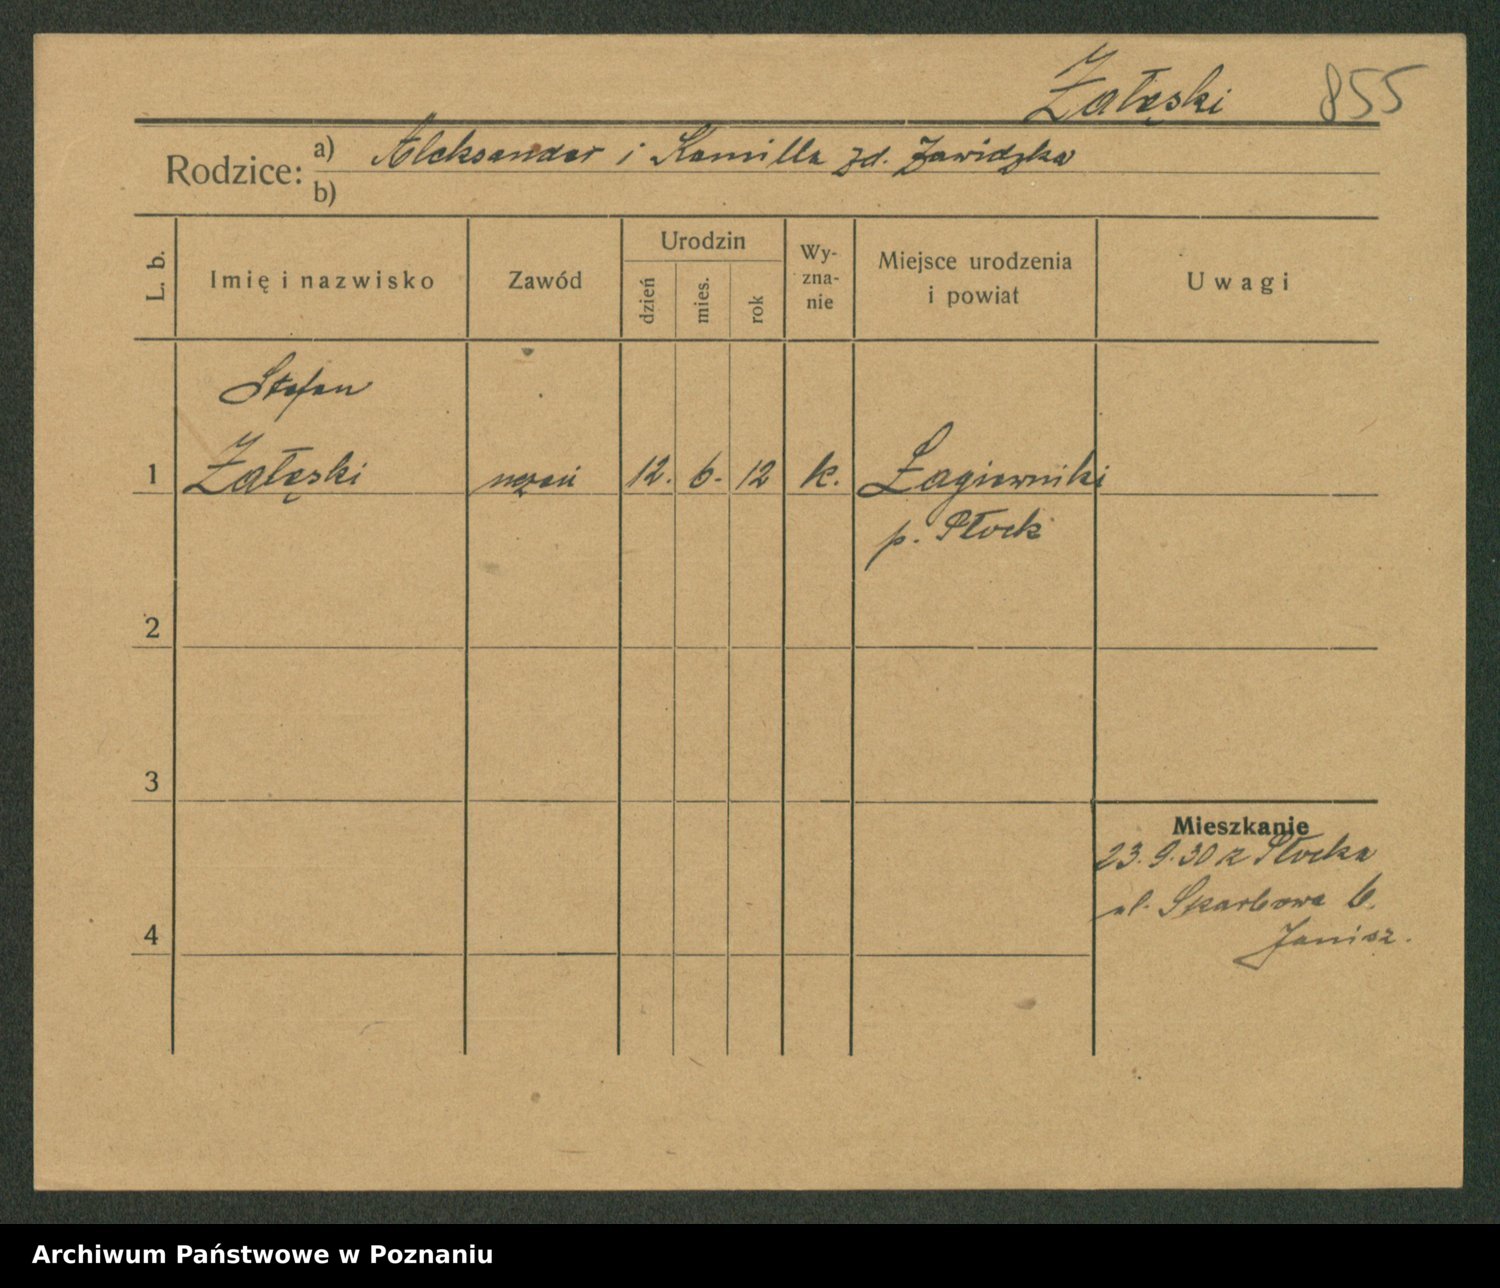 Załęski 855
Rodzice:
a) Aleksander i Kamilla zd. Zawidzka
b)
L. b.
Imię i nazwisko
Zawód
Urodzin
dzień
mies.
rok
Wy-
zna-
nie
Miejsce urodzenia
i powiat
Uwagi
Stefan
1 Załęski uczeń 12. 6. 12 k. Łagiewniki
p. Płock
2
3
Mieszkanie
23.9.30 z Płocka
ul. Skarbowa 6.
4
Janisz.
Archiwum Państwowe w Poznaniu